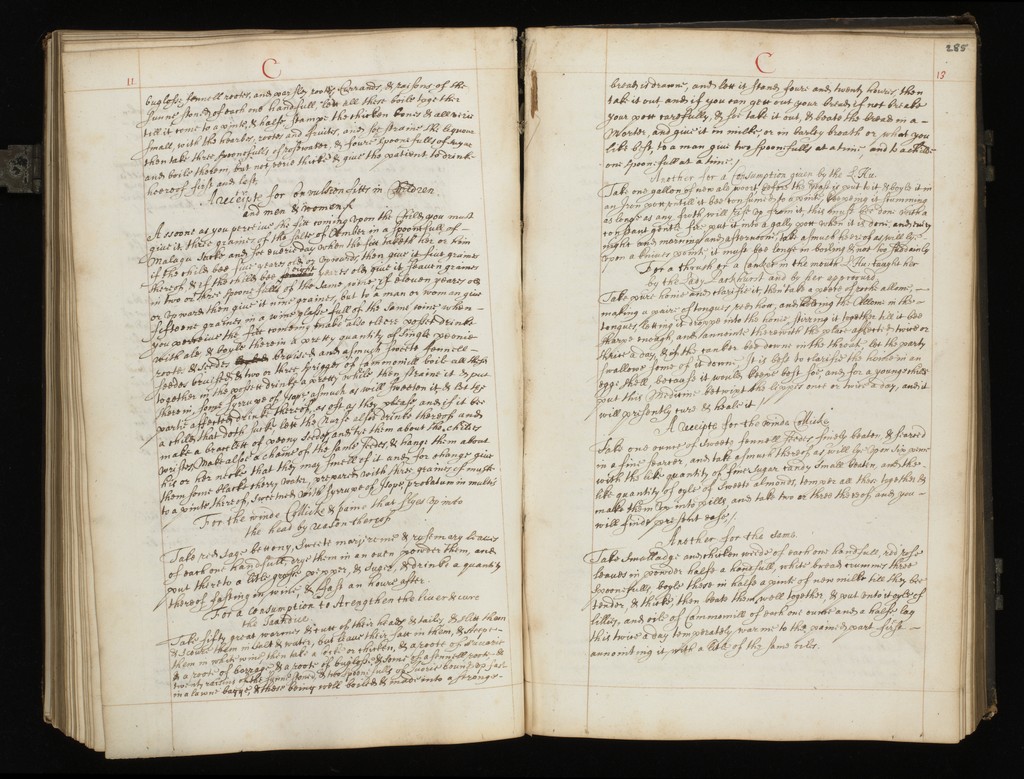 11
C
buglose fennell rootes, and parsley rootes, Currands, & raisons of the
sunne ston'd, of each one handfull, lett all these boile together
till it come to a pinte, & halfe stampe the chicken bones & all
small, with the hearbes, rootes and fruites, and soe straine the liquour
then take three spoonefulls of rosewater, & foure spoonefulls of
and boile therein, but not verie thicke & give the patient to drinke
heereof first and last,
A receipte for Convulsion fitts in Children
and men & women
A ssoone as you perceive the fitt coming upon the Child, you must
give it three graines of the salte of Amber in a spoonefull of
Malaga Sacke and soe everie day when the fitt taketh her or him
if the child bee five yeares old, or upwards, then give it five graines
thereof, & if the child bee yeares old, give it seaven graines
in two or three spoonefulls of the same wine, if eleven yeares old
or upward then give it nine graines, but to a man or woman give
fifteene graines in a wine glasse full of the same wine, when
you perceive the fitt comeing make alsoe cleere possett drinke
with ale, & boyle therein a prettty quantity of single peonie
roote, & seedes bruised, and asmuch sweete fennell
seedes bruised, & two or three sprigges of cammomill boile all these
together in the possett drinke a pretty while then straine it & put
therein, some syrrupe of as much as will sweeten it, & lett the
partie affected drinke thereof, as oft as they please, and if it bee
a child, that doth sucke lett the Nurse alsoe drinke thereof and
make a bracelett of peony seedes, and tie them about the childes
wristes, Make alsoe a chaine of the same seedes, & hange them about
his or her necke that they may smell of it and for change give
them some blacke cherry water, prepared with three graines of muske
to a pinte thereof, sweetned with syrrupe of probatum in multis
For the winde Collicke & paine that flyes up into
the head by reason thereof
Take red sage bettony, sweete marjerome & rosemary leaves
of each one handfull, drye them in an oven powder them, and
put thereto a litle grosse pepper, & suger, & drinke a quantity
thereof fasting in wine, & fast an houre after.
For a consumption to strengthen the liver & cure
the Jaundice
Take fifty great wormes & cutt of their heads, & tailes, & slitt them
& scoure them in salt & water, but leave their fatt in them, & steepe
them in white wine then take a cock or chicken, & a roote of
& a roote of borrage & a roote of buglosse, & some of a fennell roote, &
twenty raisons of the sunne ston'd, & two spoonefulls of bound up fast
in a lawne bagge, & these being well boiled & made into a strong
285
13
C
bread is drawne, and lett it stand foure and twenty houres, then
take it out and if you can gett out your bread if not breake
your pott carefully, & soe take it out, & beate the bread in a
Morter, and give it in milke, or in barley breath or what you
like best, to a man give two spoonefulls at a time, and to a childe
one spoonefull at a time
Another for a Consumption given by the L: Hu.
Take one gallon of new ale woort before the yeast is put to it & boyle it in
an Iron pott untill it bee consumed to a pinte, keeping it skumming
as longe as any froth will rise up from it, this must bee don with a
constant gentle fire put it into a gally pott when it is don, and every
night and morning and afternoone take asmuch hereof as will lye
upon a knives point, it must bee longe in boyling & not too hastily
For a thrush or a Canker in the mouth L: Hu: taught her
by the Lady and by her approoved.
Take pure honie and clarifie it, then take a peece of roche allome,
making a paire of tongues redd hott, and the Allome in the
tongues, letting it droppe into the honie, stirring it together till it bee
sharpe enough, and annointe therewith the place affected twice or
thrice a day, & if the canker bee downe in the throat, let the party
swallowe some of it downe. It is best to clarifie the honie in an
egge shell, because it would bee best soe, and for a younge childe
put this Medicine betwixt the lippes once or twice a day, and it
will presently cure & heale it
A receipte for the winde Collicke
Take one ounce of sweete fennell seedes finely beaten, & searced
in a fine searcer, and take asmuch thereof as will lye upon six pence
with the like quantity of fine sugar candy small beaten, and the
like quantity of oyle of sweete almonds, temper all these together &
make them up into pills, and take two or three thereof and you
will finde present ease
Another for the same.
Take smalladge and chicken weede of each one handfull, red rose
leaves in powder halfe a handfull, white bread crummes three
spoonefulls, boyle these in halfe a pinte of new milke till they bee
tender, & thicke, then beate them well together, & put unto it oyle of
lillies, and oile of Cammomill of each one ounce and a halfe lay
this twice a day temperately warme to the pained part first
annointing it with a litle of the same oiles.